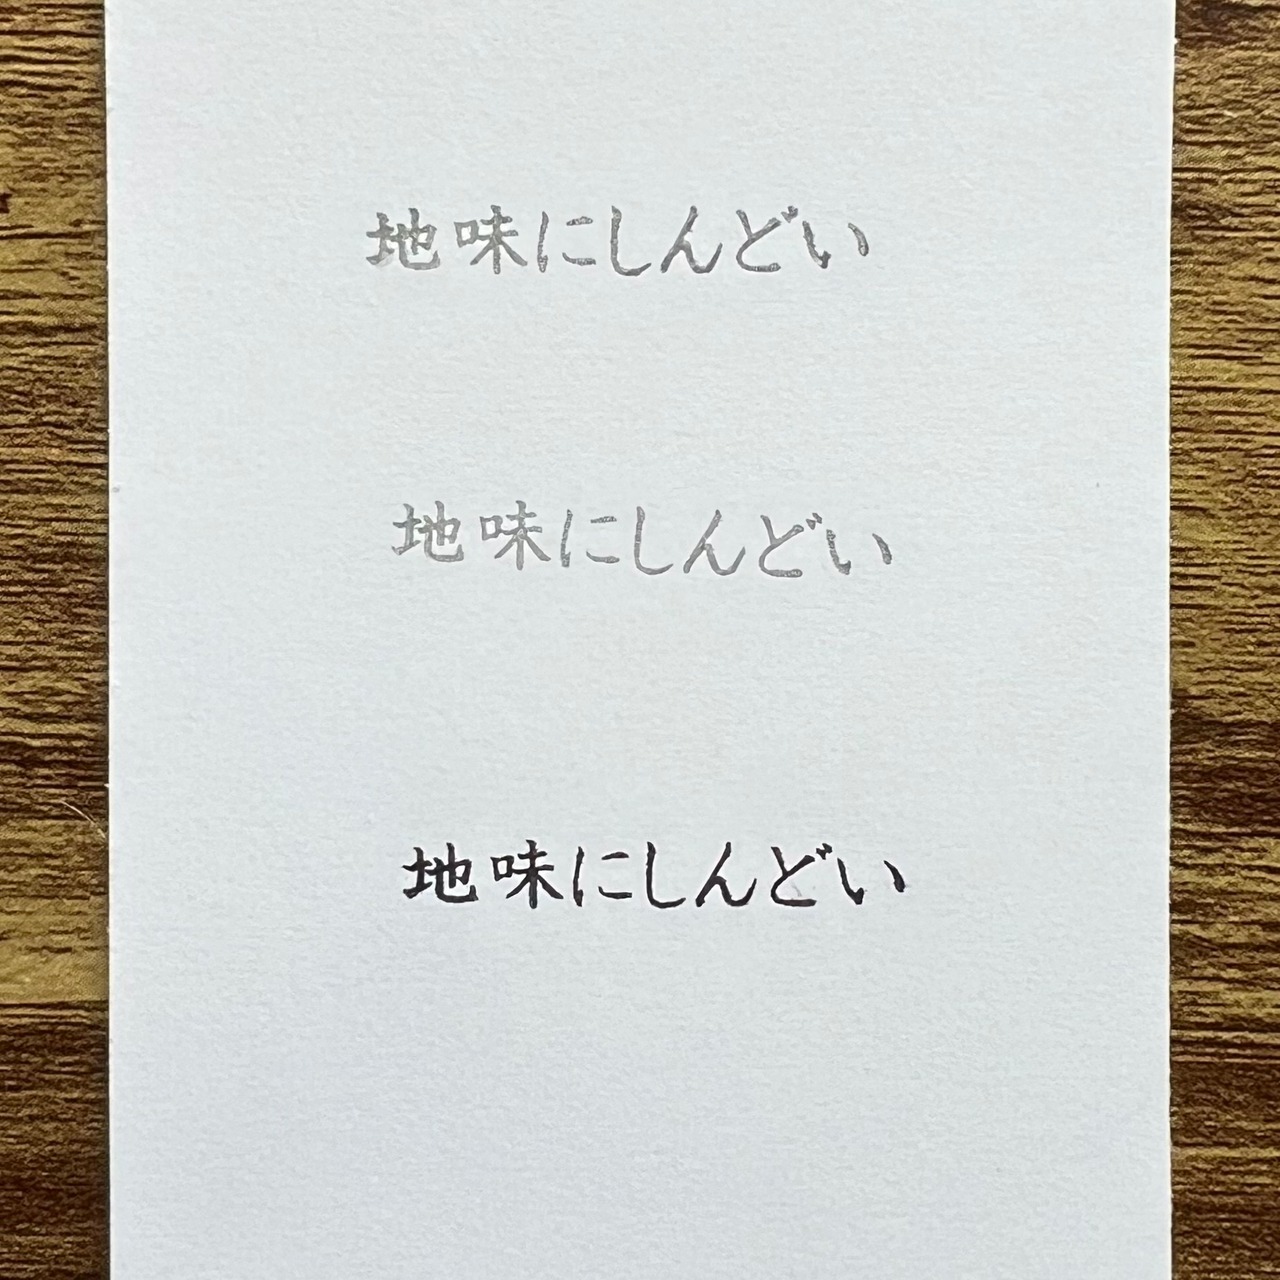 地味にしんどい
地味にしんどい
地味にしんどい